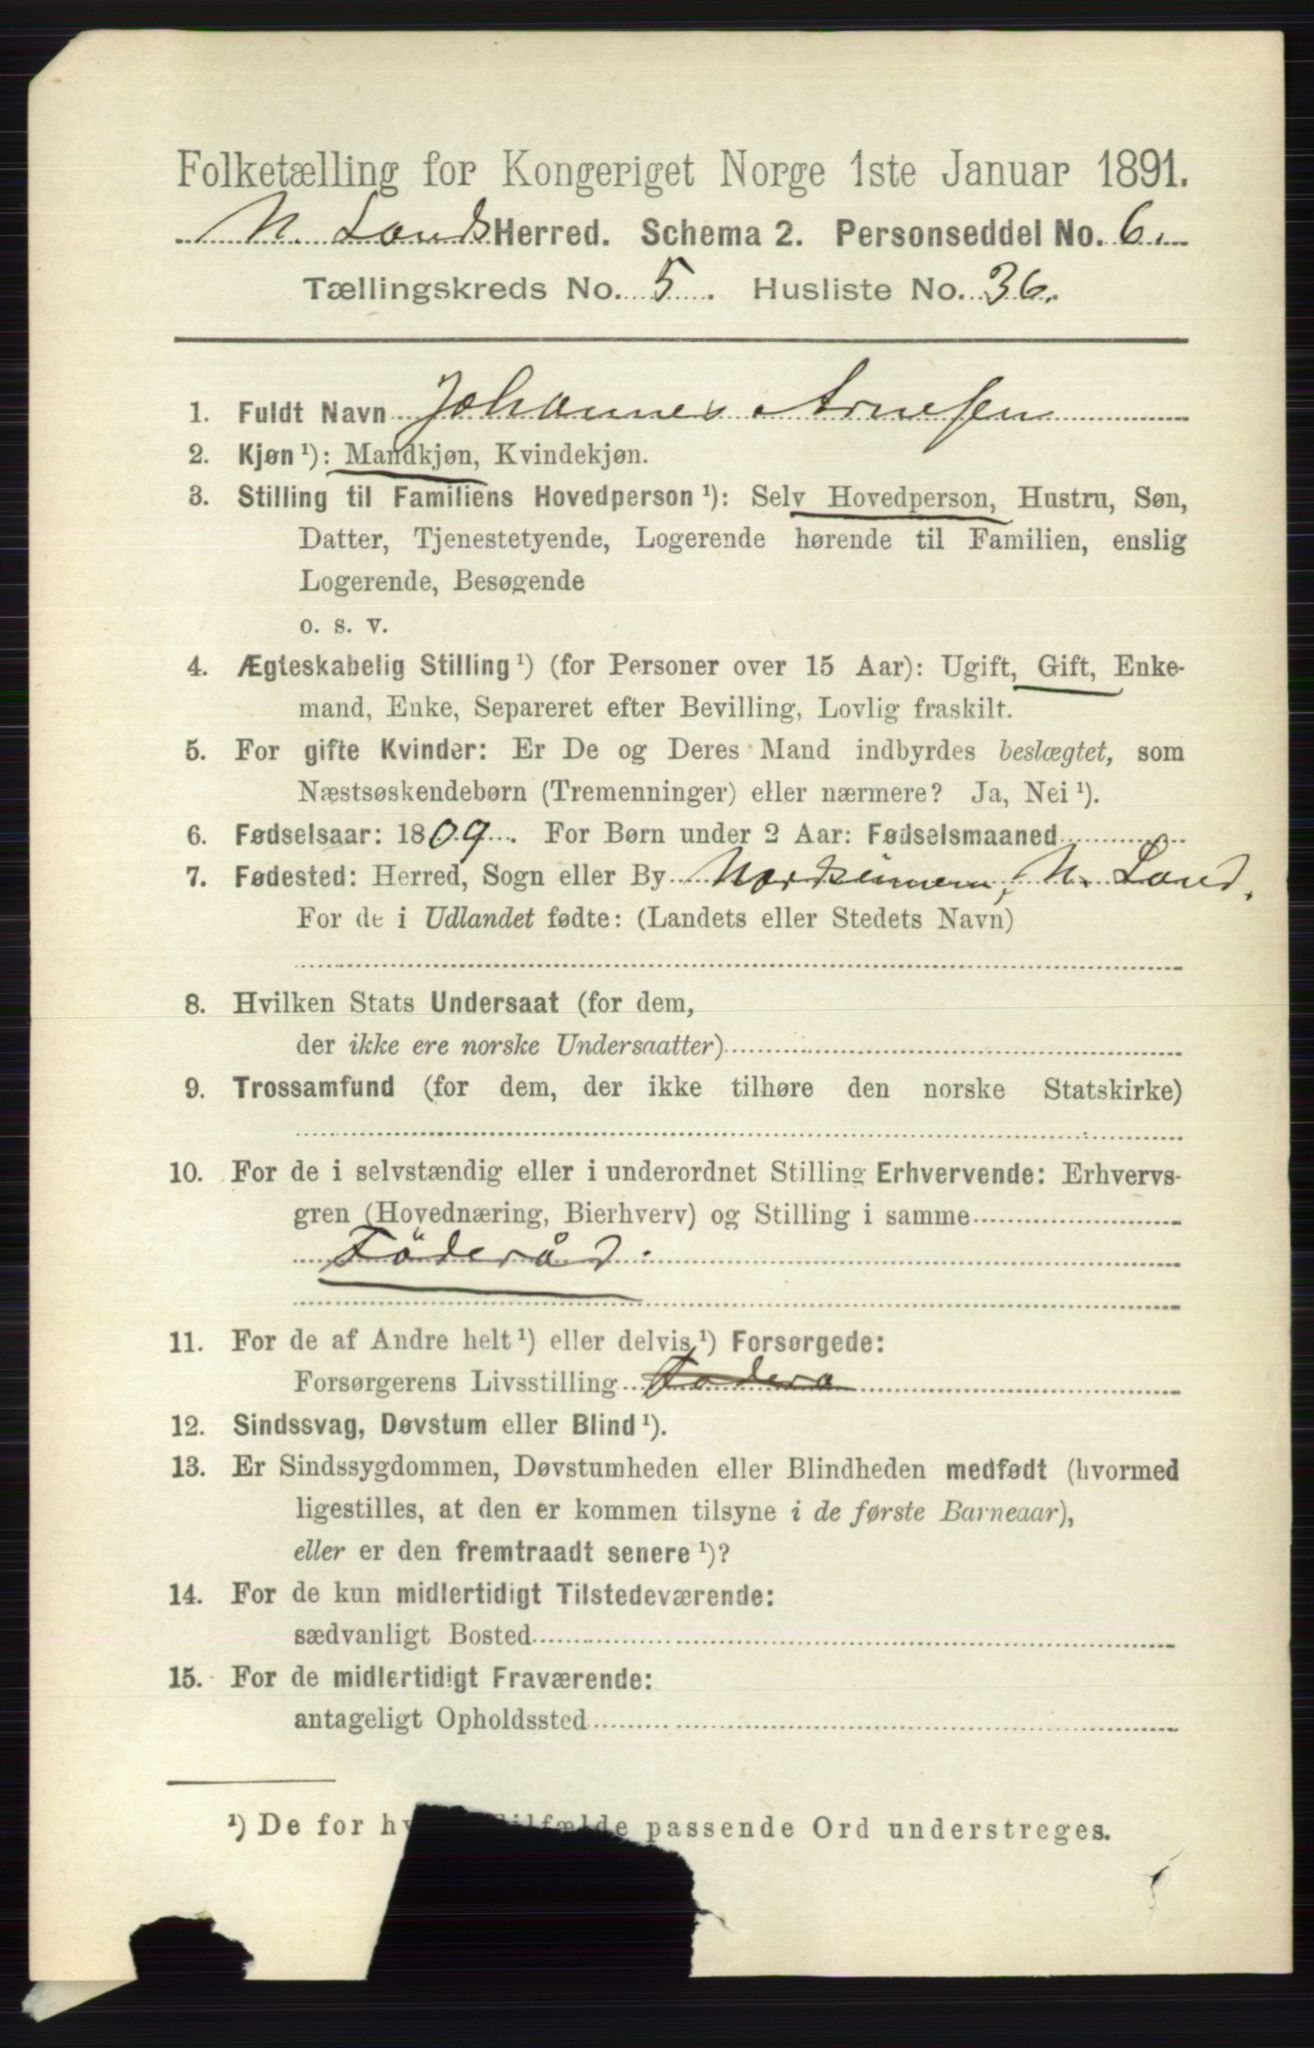 Folketælling for Kongeriget Norge 1ste Januar 1891.
N. Lands Herred. Schema 2. Personseddel No. 6.
Tællingskreds No. 5. Husliste No. 36.
1. Fuldt Navn Johannes Arnesen
2. Kjøn ¹): Mandkjøn, Kvindekjøn.
3. Stilling til Familiens Hovedperson ¹): Selv Hovedperson, Hustru, Søn,
Datter, Tjenestetyende, Logerende hørende til Familien, enslig
Logerende, Besøgende
o. s. v.
4. Ægteskabelig Stilling ¹) (for Personer over 15 Aar): Ugift, Gift, Enke-
mand, Enke, Separeret efter Bevilling, Lovlig fraskilt.
5. For gifte Kvinder: Er De og Deres Mand indbyrdes beslægtet, som
Næstsøskendebørn (Tremenninger) eller nærmere? Ja, Nei ¹).
6. Fødselsaar: 1809. For Børn under 2 Aar: Fødselsmaaned
7. Fødested: Herred, Sogn eller By N. Land.
For de i Udlandet fødte: (Landets eller Stedets Navn)
8. Hvilken Stats Undersaat (for dem,
der ikke ere norske Undersaatter)
9. Trossamfund (for dem, der ikke tilhøre den norske Statskirke)
10. For de i selvstændig eller i underordnet Stilling Erhvervende: Erhvervs-
gren (Hovednæring, Bierhverv) og Stilling i samme
Föderåd.
11. For de af Andre helt ¹) eller delvis ¹) Forsørgede:
Forsørgerens Livsstilling Födera
12. Sindssvag, Døvstum eller Blind ¹).
13. Er Sindssygdommen, Døvstumheden eller Blindheden medfødt (hvormed
ligestilles, at den er kommen tilsyne i de første Barneaar),
eller er den fremtraadt senere ¹)?
14. For de kun midlertidigt Tilstedeværende:
sædvanligt Bosted
15. For de midlertidigt Fraværende:
antageligt Opholdssted
¹) De for hv Tilfælde passende Ord understreges.